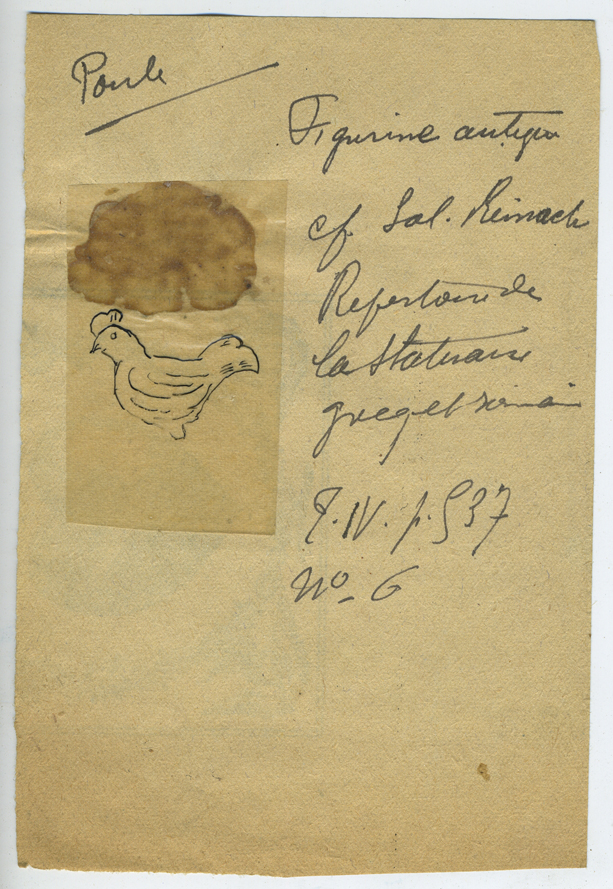 Poule
Figurine antique
cf Sal. Reinach
Repertoire de
la Statuaire
grecq et romain
T. IV. p. 537
No 6